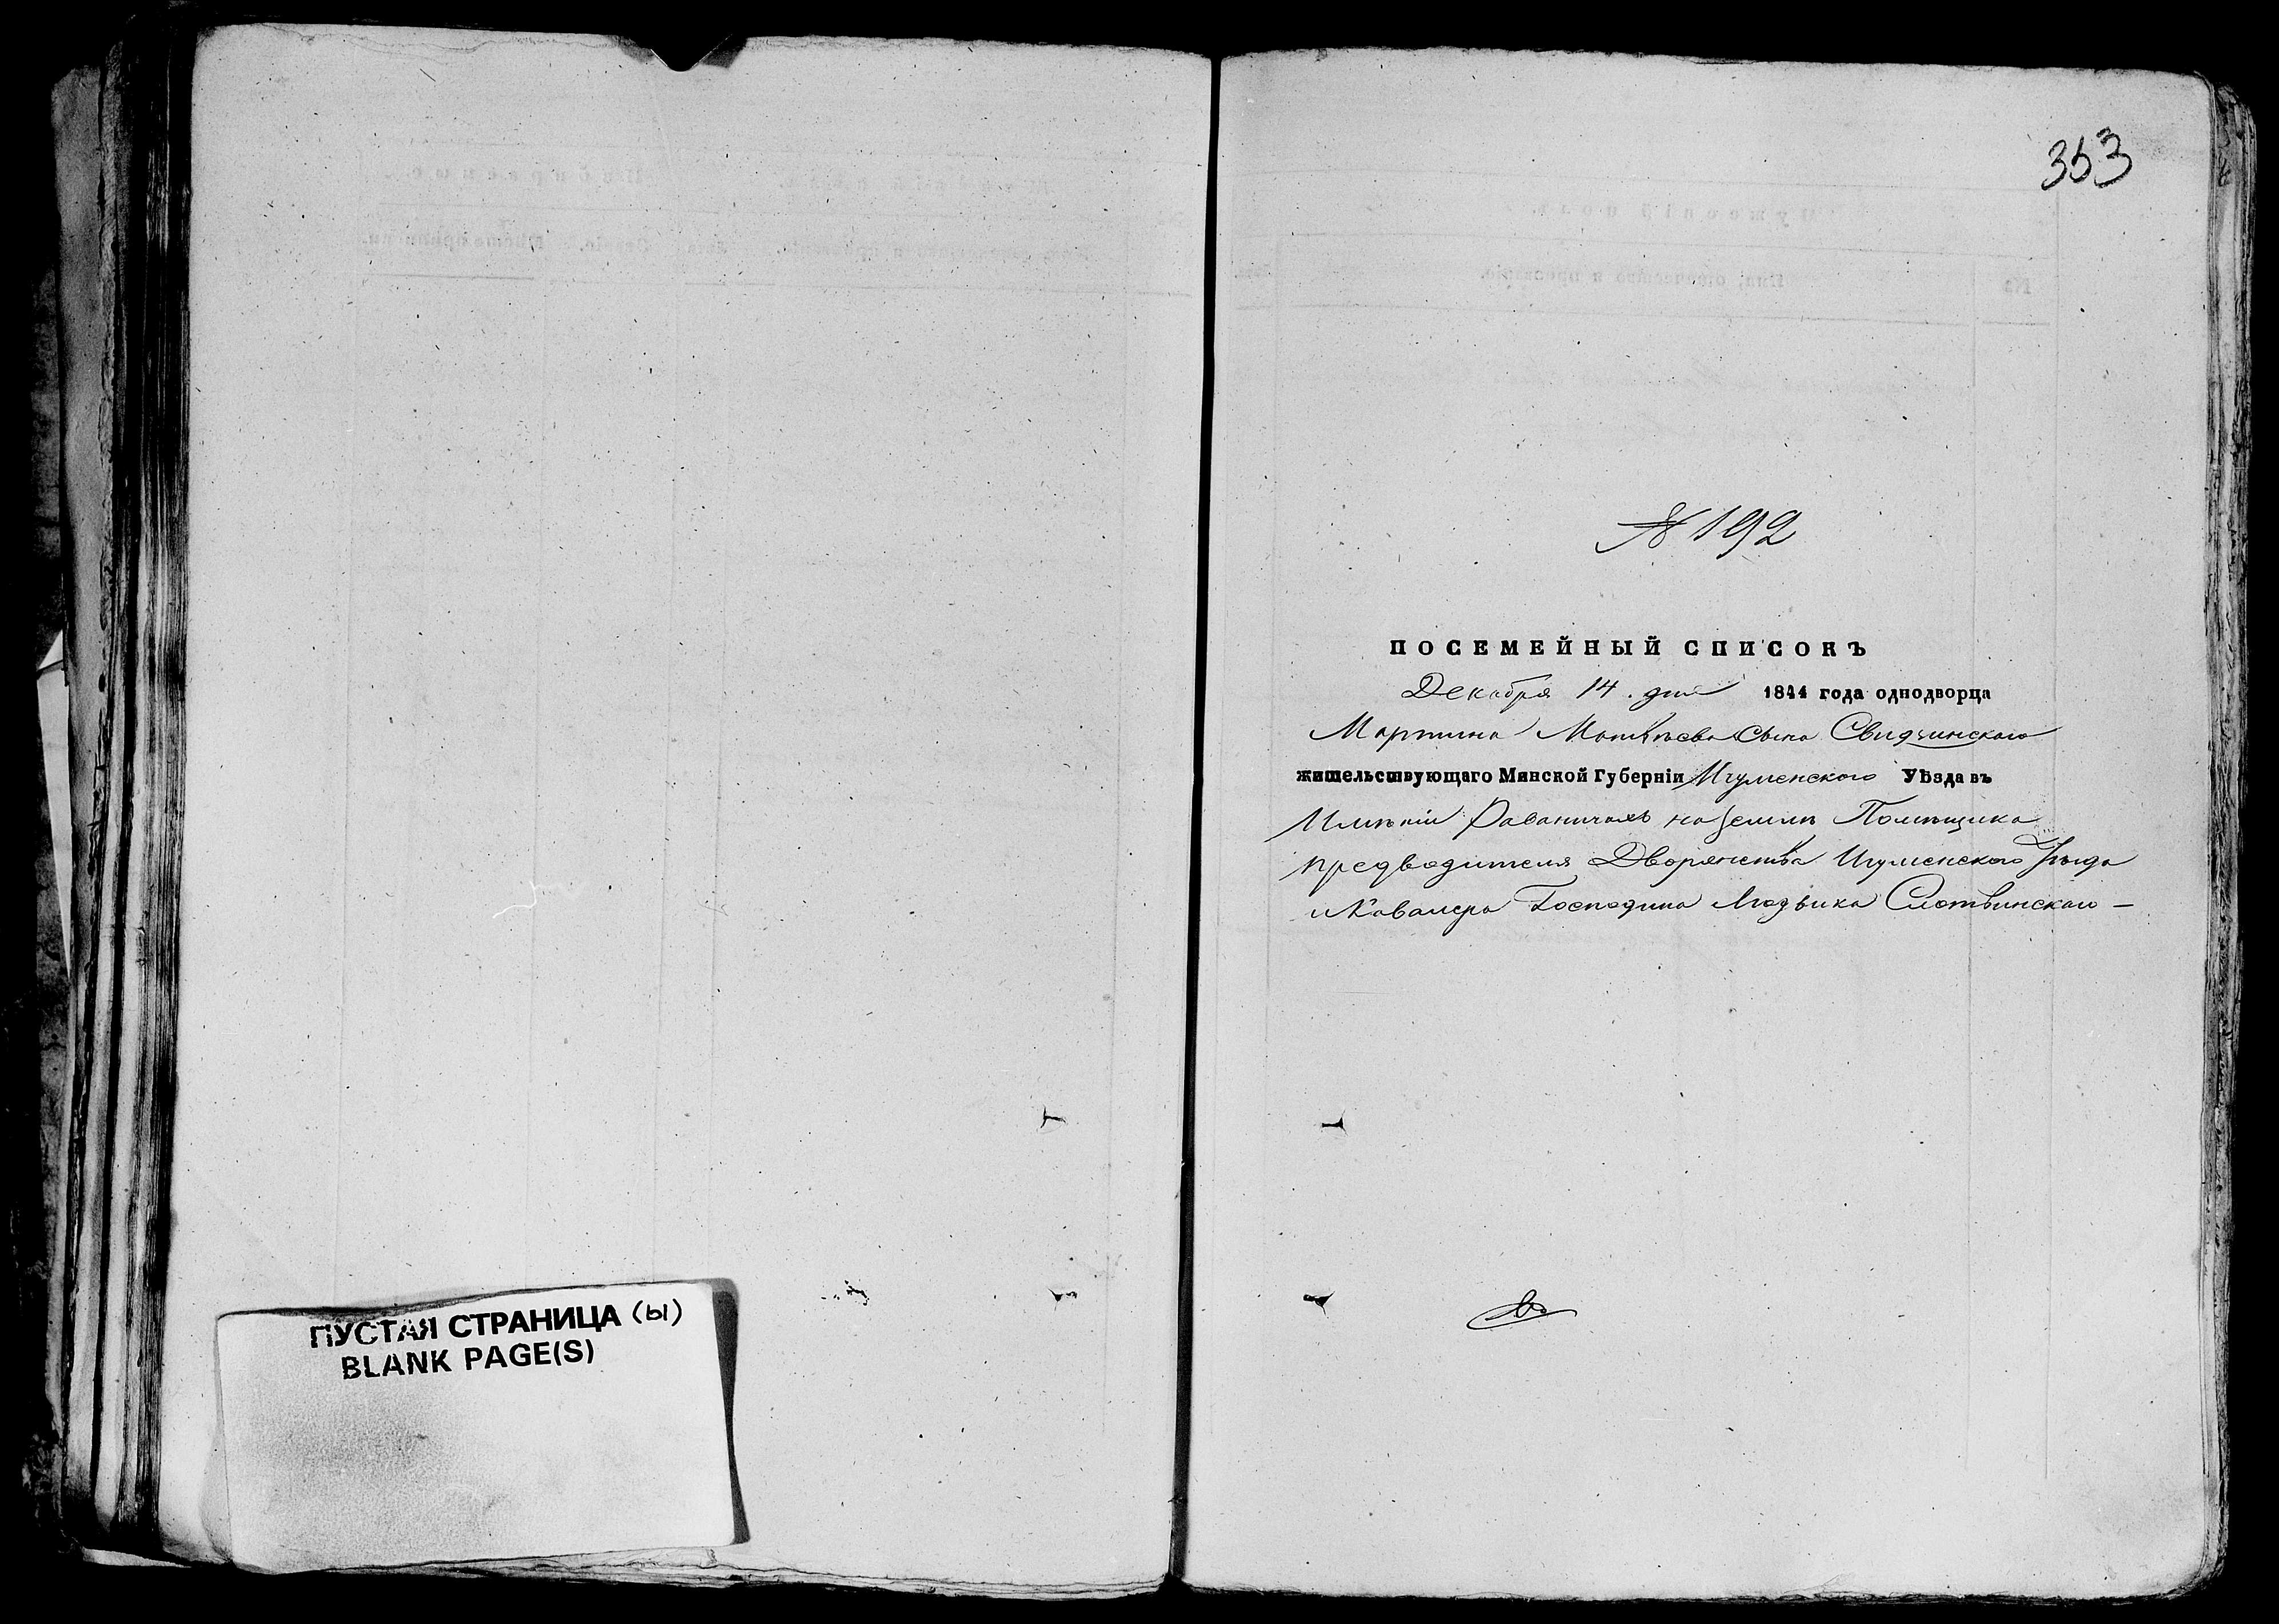 353
№ 192
ПОСЕМЕЙНЫЙ СПИСОКЪ
Декабря 14. дня 1844 года однодворца
Мартина Матвѣева сына Свидзинскаго
жительствующаго Минской Губерніи Игуменскаго Уѣзда въ
Имѣніи Раваничахъ на землѣ Помѣщика
предводителя Дворянства Игуменскаго уѣзда
и Кавалера Господина Людвика Слотвинскаго —
ПУСТАЯ СТРАНИЦА (Ы)
BLANK PAGE(S)